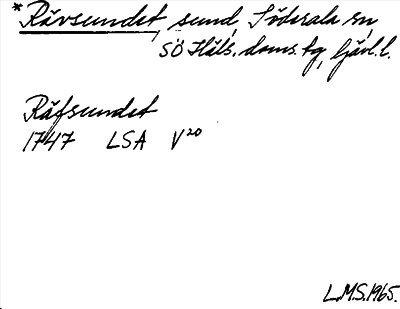 *Rävsundet, sund, Söderala sn,
SÖ Häls. doms. tg, Gävl. l.
Räfsundet
1747 LSA V²⁰
L.M.S. 1965.